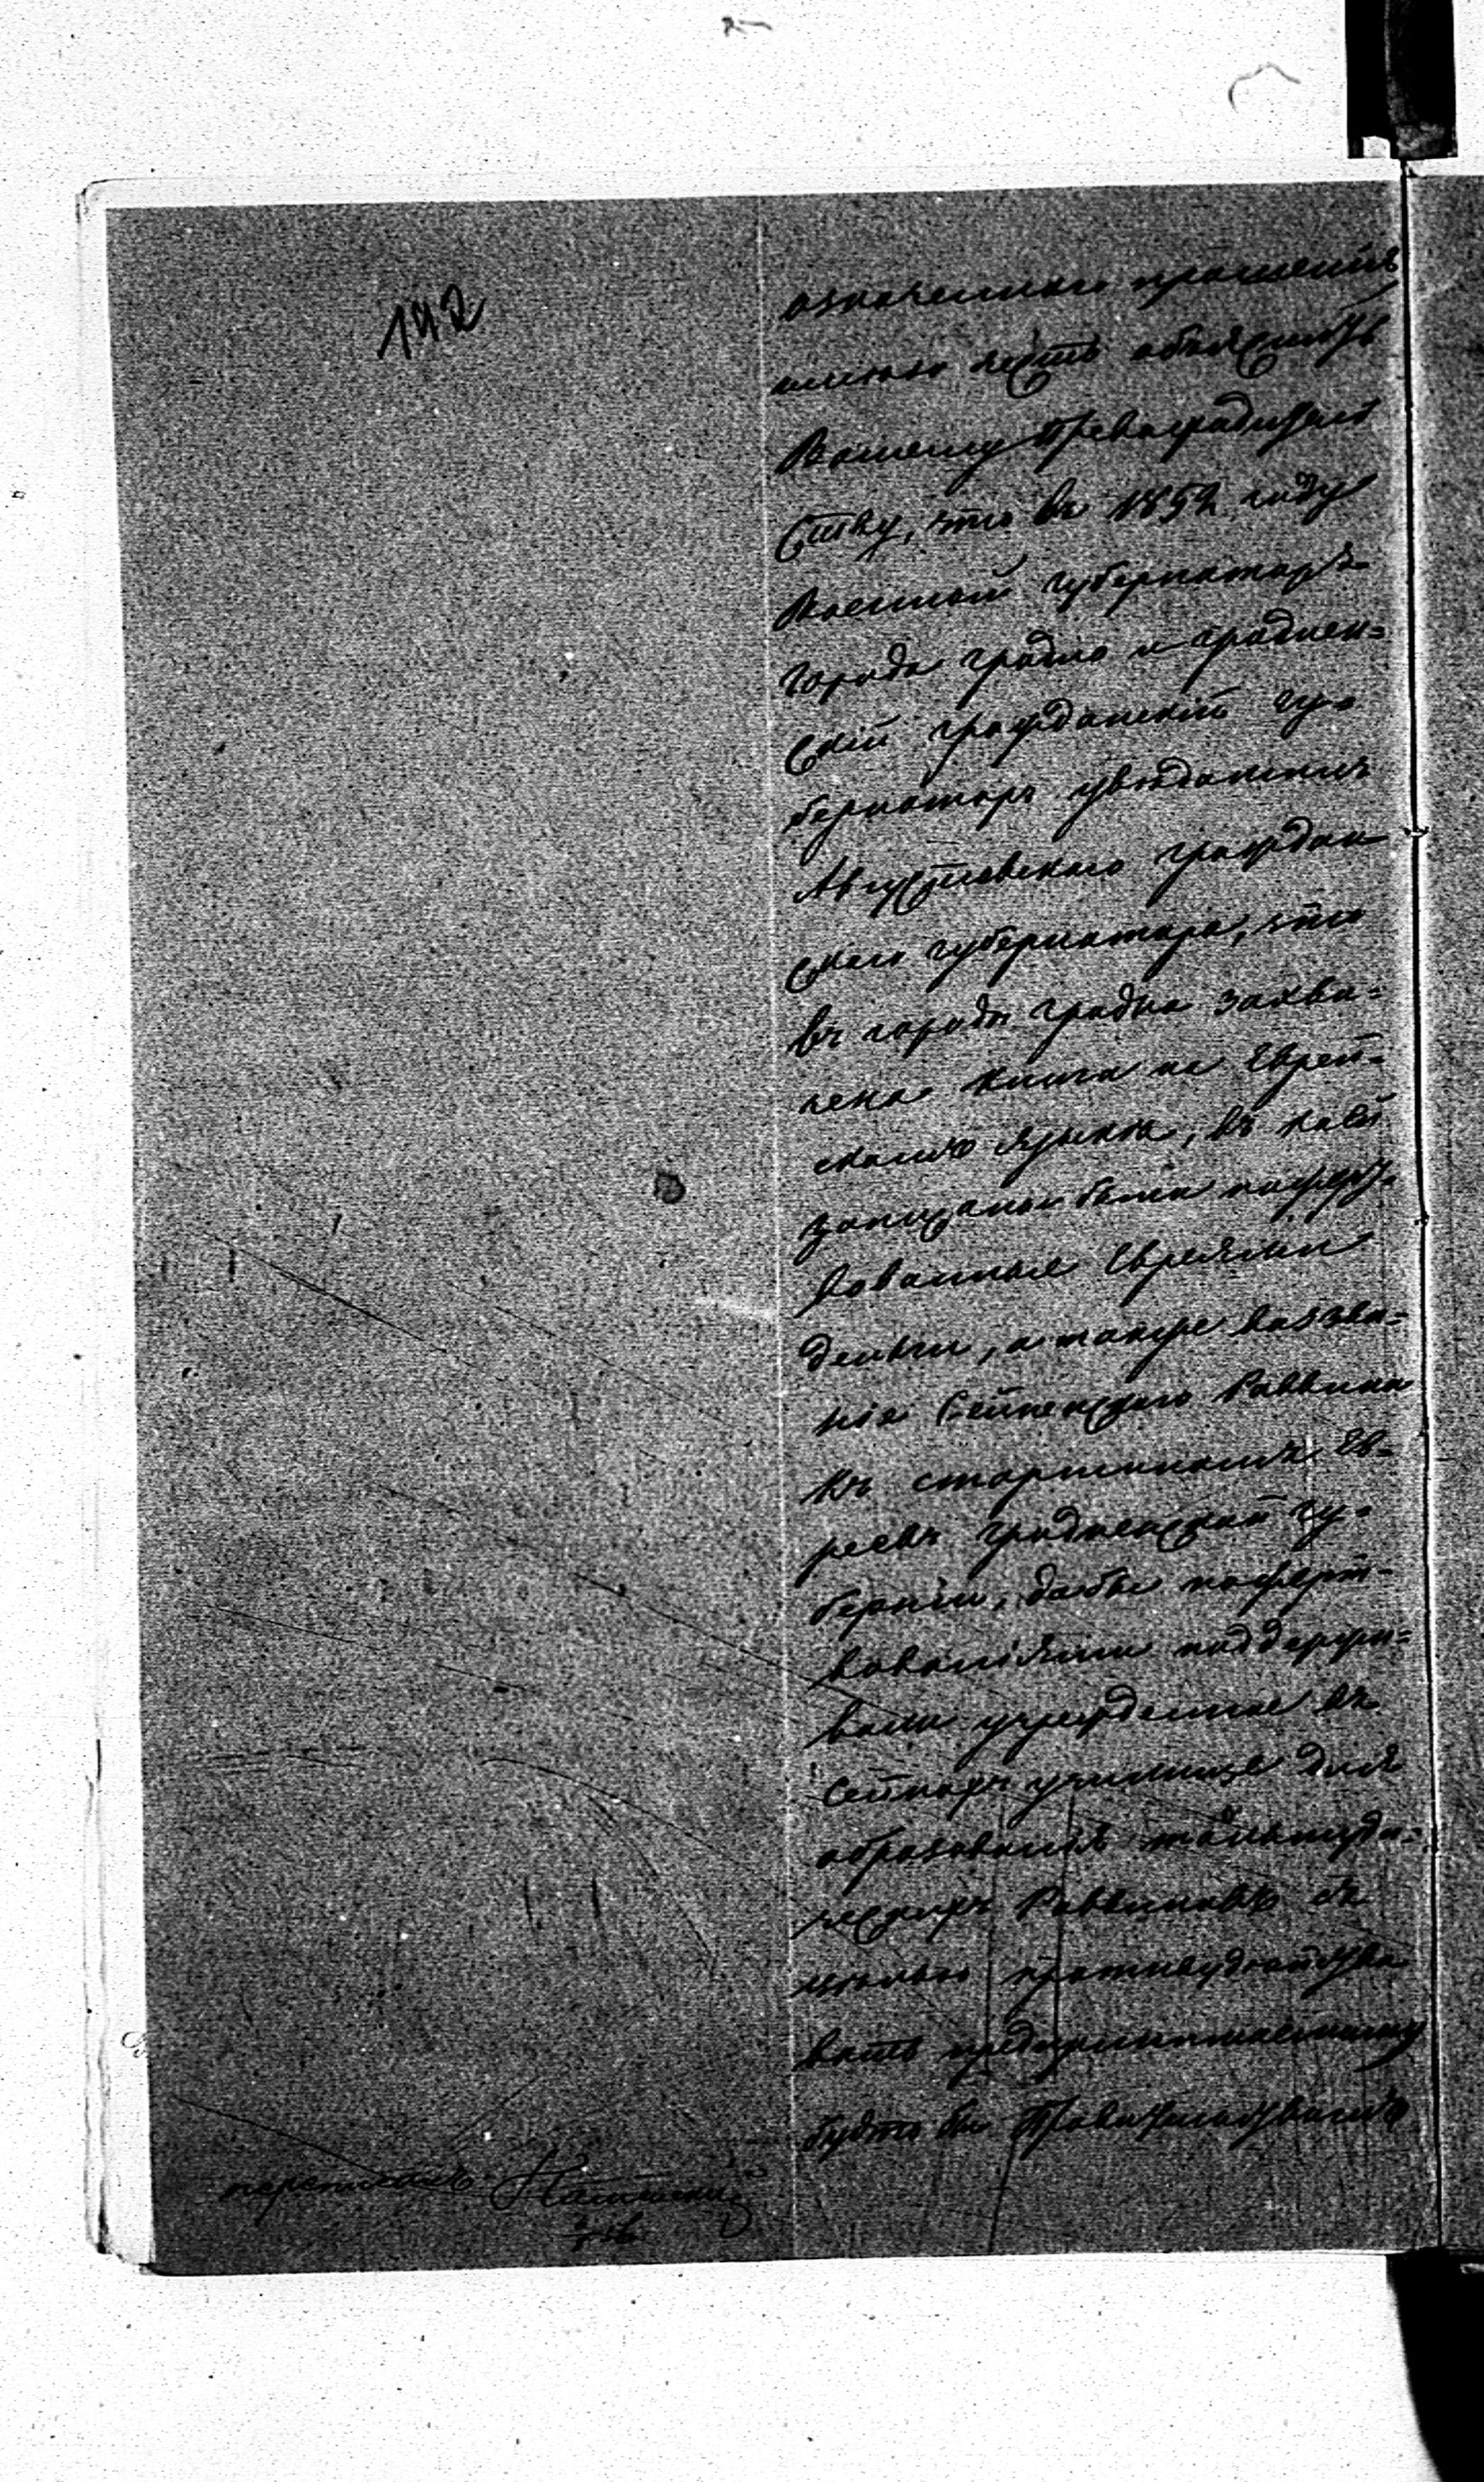 142
означеннаго прошенія
имѣю честь объяснить
Вашему Превосходитель
ству, что въ 1852 году
Военный Губернаторъ
города Гродно и Гроднен=
скій Гражданскій Гу=
бернаторъ увѣдомилъ
Августовскаго Граждан
скаго Губернатора, что
въ городѣ Гродно захва=
чена книга на Еврей=
скомъ языкѣ, въ коей
записаны были пожерт=
вованныя Евреями
деньги, а также воззва=
нія Сейненскаго Раввина
къ старшинамъ Ев=
реевъ Гродненской гу=
берніи, дабы пожерт=
вованіями поддержи=
вали учрежденное въ
Сейнахъ училище для
образованія талмуди=
ческихъ Раввиновъ съ
цѣлью противудѣйство
вать предпринимаемому
будто бы Правительствомъ
переписалъ